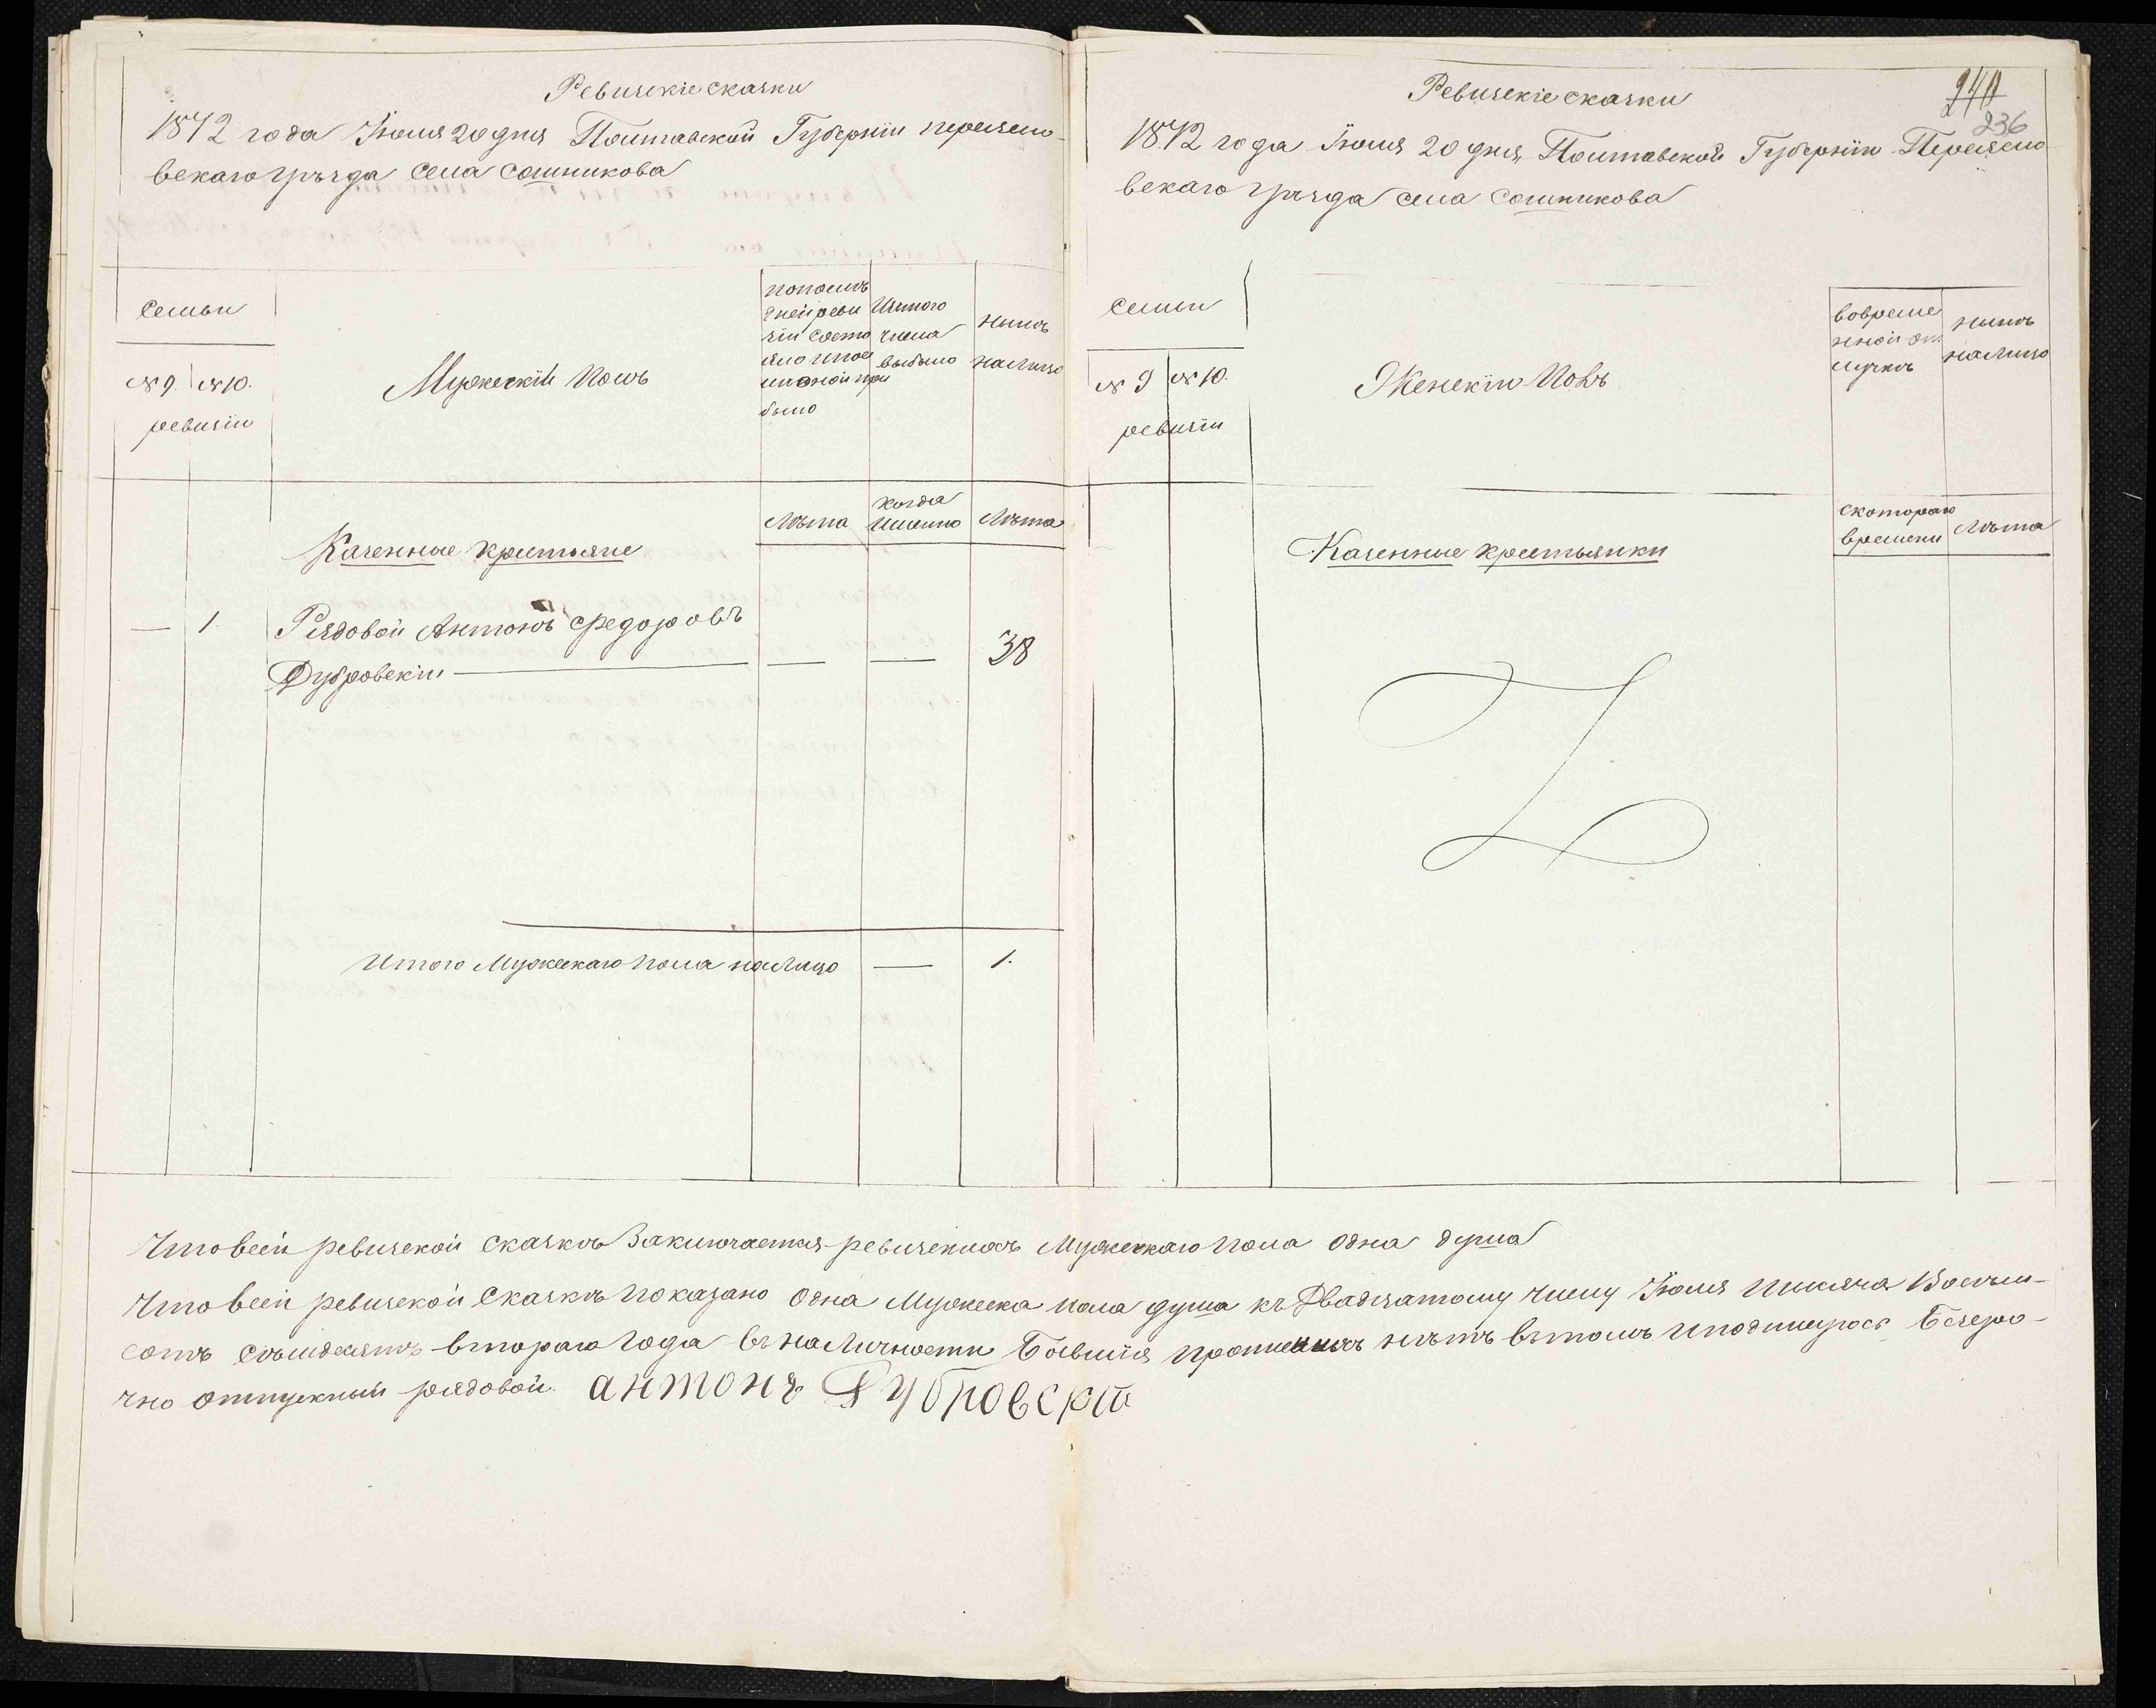 Ревизскіе сказки
1872 года Іюля 20 дня Полтавской Губерніи переясло-
вскаго уѣзда села сошникова
Семьи
№ 9. № 10.
ревизіи
Мужескій Полъ
попослѣ
дней реви
зіи состо
яло и пос
ли оной при
было
Изтого
числа
выбыло
нынѣ
налицо
Лѣта
Когда
Именно
Лѣта
Казенные крестьяне
— 1. Рядовой Антонъ Федоровъ
Дубровскій — — — 38
Итого Мужескаго пола налицо — 1.
Ревизскіе сказки
240
236
1872 года Іюля 20 дня Полтавской Губерніи Переясло
вскаго уѣзда села сошникова
Семьи
№ 9 № 10.
ревизіи
Женскій Полъ
вовреме
нной от
лучкѣ
нынѣ
налицо
скотораго
времени
Лѣта
Казенные крестьянки
Что всей ревизской сказкѣ Заключается ревизскихъ Мужескаго пола одна душа
Что всей ревизской Сказкѣ показано одна Мужеска пола душа къ Двадцатому числу Іюля тисяча Восемь-
сотъ семдесятъ втораго года въ наличности Бывшія прописныхъ нѣтъ вътомъ иподпишуюсь Безсро-
чно отпускный рядовой. антонъ Дубровскій